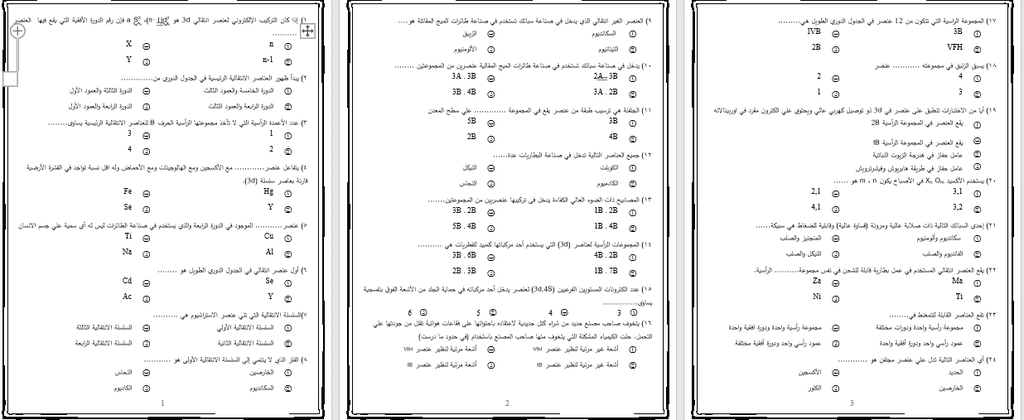 ١) إذا كان التركيب الإلكتروني لعنصر انتقالي 3d هو فإن رقم الدورة الأفقية التي يقع فيها العنصر
n
X
n-1
Y
٢) يبدأ ظهور العناصر الانتقالية الرئيسية في الجدول الدوري من............
الدورة الخامسة والعمود الثالث
الدورة الثالثة والعمود الأول
الدورة الرابعة والعمود الثالث
الدورة الرابعة والعمود الأول
٣) عدد الأعمدة الرأسية التي لا تأخذ مجموعتها الرأسية الحرف B للعناصر الانتقالية الرئيسية يساوي........
1
3
2
4
٤) يتفاعل عنصر............ مع الأكسجين ومع الهالوجينات ومع الأحماض وله اقل نسبة تواجد في القشرة الأرضية
قارنة بعاصر سلسلة (3d).
Hg
Fe
Y
Se
٥) عنصر........... الموجود في الدورة الرابعة والذي يستخدم في صناعة الطائرات ليس له أي سمية علي جسم الانسان
Cu
Ti
Al
Na
٦) أول عنصر انتقالي في الجدول الدوري الطويل هو ........
Se
Cd
Y
Ac
٧)السلسلة الانتقالية التي تلي عنصر الاسترانشيوم هي ..........
السلسلة الانتقالية الأولي
السلسلة الانتقالية الثالثة
السلسلة الانتقالية الثانية
السلسلة الانتقالية الرابعة
٨) الفلز الذي لا ينتمي إلى السلسلة الانتقالية الأولي هو .........
الخارصين
النحاس
السكانديوم
الكاديوم
1
٩) العنصر الغير انتقالي الذي يدخل في صناعة سبائك تستخدم في صناعة طائرات الميج المقاتلة هو....
السكانديوم
الزئبق
التيتانيوم
الألومنيوم
١٠) يدخل في صناعة سبائك تستخدم في صناعة طائرات الميج المقاتلة عنصرين من المجموعتين ........
2A . 3B
3A . 3B
3A . 2B
3B . 4B
١١) الجلفنة هي ترسيب طبقة من عنصر يقع في المجموعة ............ علي سطح المعدن
3B
5B
4B
2B
١٢) جميع العناصر التالية تدخل في صناعة البطاريات عدة......
الكوبلت
النيكل
الكادميوم
النحاس
١٣) المصابيح ذات الضوء العالي الكفاءة يدخل في تركيبها عنصرين من المجموعتين.......
1B . 2B
3B . 2B
1B . 4B
5B . 4B
١٤) المجموعات الرأسية لعناصر (3d) التي يستخدم أحد مركباتها كمبيد للفطريات هي .........
4B . 2B
3B . 6B
1B . 7B
2B . 3B
١٥) عدد الكترونات المستويين الفرعيين (3d,4S) لعنصر يدخل أحد مركباته في حماية الجلد من الأشعة الفوق بنفسجية
يساوي...............
3
4
5
6
١٦) يتخوف صاحب مصنع حديد من شراء كتل حديدية لاعتقاده باحتوائها علي فقاعات هوائية تقلل من جودتها علي
التحمل. حلت الكيمياء المشكلة التي يتخوف منها صاحب المصنع باستخدام (في حدود ما درست)
أشعة غير مرئية لنظير عنصر VIIH
أشعة مرئية لنظير عنصر VIIH
أشعة غير مرئية لنظير عنصر IB
أشعة مرئية لنظير عنصر IB
2
١٧) المجموعة الراسية التي تتكون من 12 عنصر في الجدول الدوري الطويل هي.........
3B
IVB
VFH
2B
١٨) يسبق الزئبق في مجموعته ......... عنصر
4
2
3
1
١٩) أيا من الاختيارات تنطبق علي عنصر في 3d ذو توصيل كهربي عالي ويحتوي علي الكترون مفرد في اوربيتالاته
يقع العنصر في المجموعة الرأسية 2B
يقع العنصر في المجموعة الرأسية IB
عامل حفاز في هدرجة الزيوت النباتية
عامل حفاز في طريقة هابربوش وفيشرتروبش
٢٠) يستخدم الأكسيد في الأصباغ يكون m ، n هو ......
3,1
2,1
3,2
4,1
٢١) إحدى السبائك التالية ذات صلابة عالية ومرونة (قساوة عالية) وقابلية للضغاط هي سبيكة......
سكانديوم وألومنيوم
المنجنيز والصلب
الفانديوم والصلب
النيكل والصلب
٢٢) يقع العنصر انتقالي المستخدم في عمل بطارية قابلة للشحن في نفس مجموعة.......... الرأسية.
Ma
Za
Ti
Ni
٢٣) تقع العناصر القابلة للتمغنط في.............
مجموعة رأسية واحدة ودورات مختلفة
مجموعة رأسية واحدة ودورة أفقية واحدة
عمود رأسي واحد ودورة أفقية واحدة
عمود رأسي واحد ودورة أفقية مختلفة
٢٤) أي العناصر التالية تدل علي عنصر مجلفن هو ............
الحديد
الأكسجين
الخارصين
الكلور
3